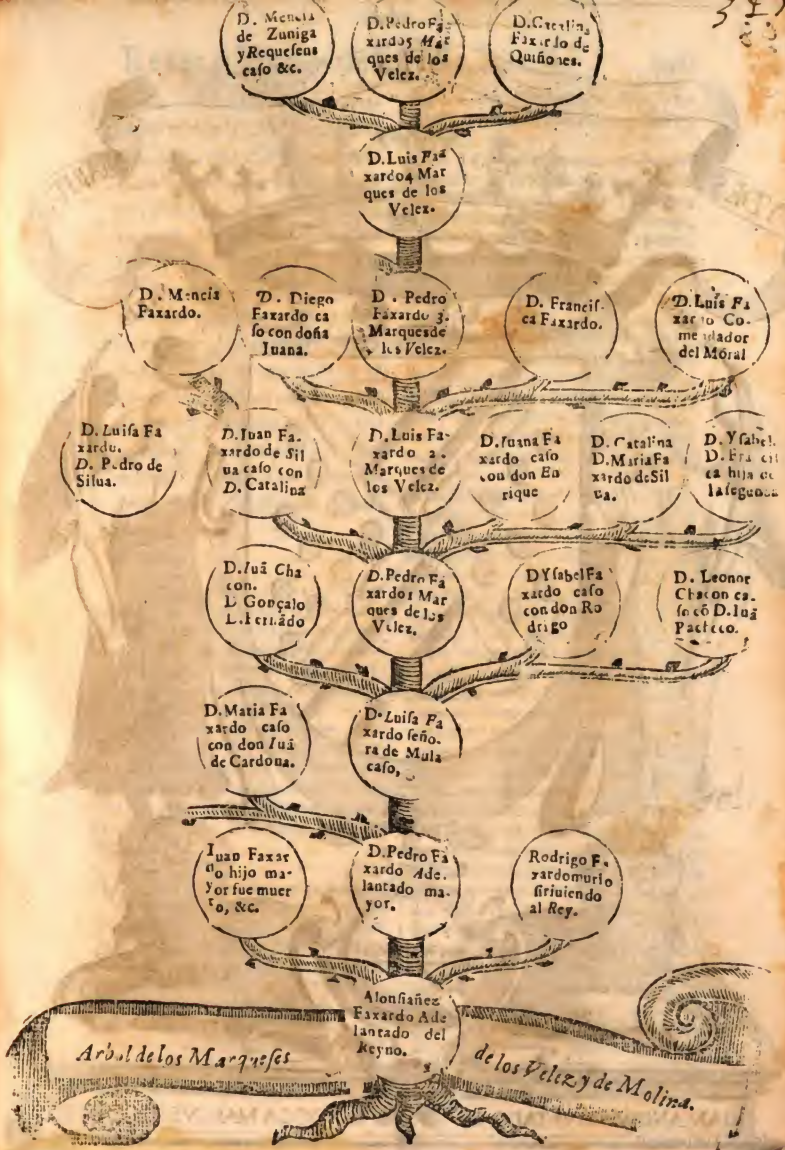 D. Mencia
de Zuniga
y Requesens
caso &c.
D. Pedro Fa-
xardo 5 Mar
ques de los
Velez.
D. Catalina
Faxardo de
Quiñones.
D. Luis Fa
xardo 4 Mar
ques de los
Velez.
D. Mencia
Faxardo.
D. Diego
Faxardo ca
so con doña
Iuana.
D. Pedro
Faxardo 3.
Marques de
los Velez.
D. Francis-
ca Faxardo.
D. Luis Fa
xardo Co-
mendador
del Moral
D. Luisa Fa
xardo.
D. Pedro de
Silua.
D. Iuan Fa-
xardo de Sil
ua caso con
D. Catalina
D. Luis Fa-
xardo 2.
Marques de
los Velez.
D. Iuana Fa
xardo caso
con don En
rique
D. Catalina
D. Maria Fa
xardo de Sil
ua.
D. Ysabel.
D. Fra cis
ca hija de
la segunda
D. Iuā Cha
con.
D. Gonçalo
D. Fernādo
D. Pedro Fa
xardo 1 Mar
ques de los
Velez.
D Ysabel Fa
xardo caso
con don Ro
drigo
D. Leonor
Chacon ca-
so cō D. Iuā
Pacheco.
D. Maria Fa
xardo caso
con don Iuā
de Cardona.
D. Luisa Fa
xardo seño-
ra de Mula
caso,
Iuan Faxar
do hijo ma-
yor fue muer
to, &c.
D. Pedro Fa
xardo Ade-
lantado ma-
yor.
Rodrigo F.
xardo murio
siruiendo
al Rey.
Alonsiañez
Faxardo Ade
lantado del
Reyno.
Arbol de los Marqueses de los Velez y de Molina.